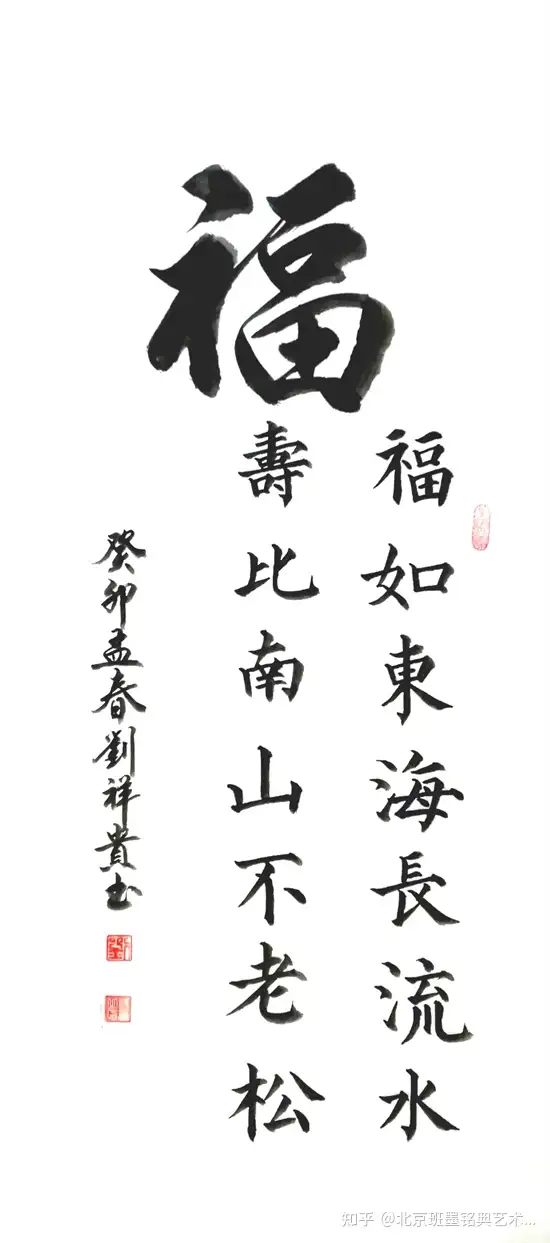 福
福如東海長流水
壽比南山不老松
癸卯孟春劉祥貴书
知乎 @北京班墨铭典艺术...